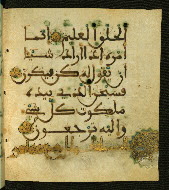 الخلق العليم انما
امره اذا اراد شيئا
ان يقول له كن فيكون
فسبحن الذى بيده
ملكوت كل شىء
واليه ترجعون